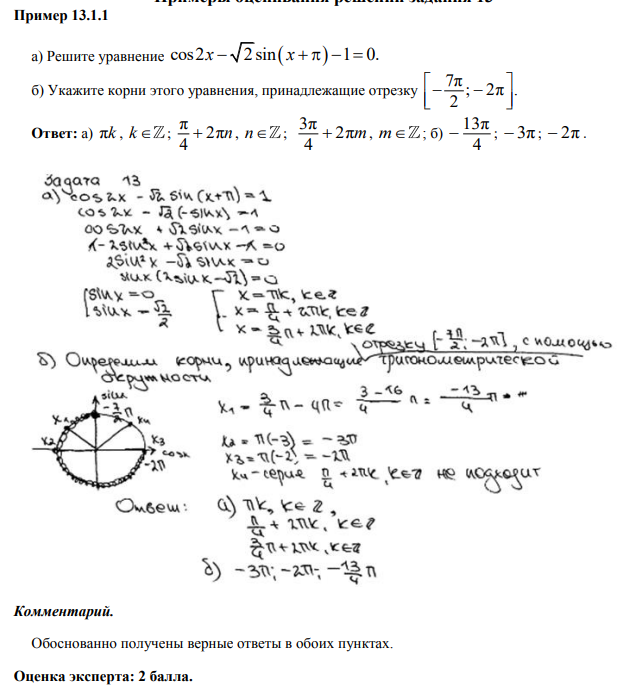 Примеры оценивания решений задания 13
Пример 13.1.1
а) Решите уравнение cos2x − √2 sin(x + π) − 1 = 0.
б) Укажите корни этого уравнения, принадлежащие отрезку [−7π/2; −2π].
Ответ: а) πk, k ∈ ℤ; π/4 + 2πn, n ∈ ℤ; 3π/4 + 2πm, m ∈ ℤ; б) −13π/4; −3π; −2π.
Задача 13
а) cos2x − √2 sin(x+π) = 1
cos2x − √2(−sinx) = 1
cos2x + √2sinx − 1 = 0
1 − 2sin²x + √2sinx − 1 = 0
2sin²x − √2 sinx = 0
sinx(2sinx − √2) = 0
[sinx = 0 [x = πk, k∈Z
sinx = √2/2 x = π/4 + 2πk, k∈Z
x = 3/4π + 2πk, k∈Z
отрезку [−7π/2; −2π], с помощью
б) Определим корни, принадлежащие тригонометрической
окружности
sinx
−7/2π
x1 x4
x2 x3
cosx
−2π
x1 = 3/4π − 4π = (3−16)/4 π = −13/4 π
x2 = π(−3) = −3π
x3 = π(−2) = −2π
x4 − серие π/4 + 2πk, k∈Z не подходит
Ответ: а) πk, k∈Z,
π/4 + 2πk, k∈Z
3/4π + 2πk, k∈Z
б) −3π; −2π; −13/4π
Комментарий.
Обоснованно получены верные ответы в обоих пунктах.
Оценка эксперта: 2 балла.